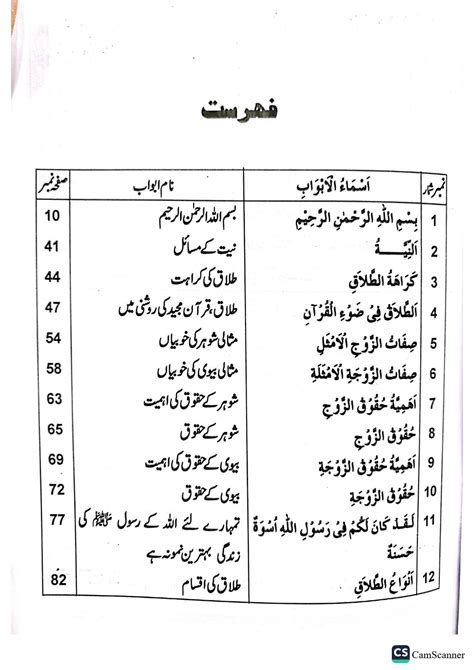 فہرست
نمبر شمار اَسْمَاءُ الْاَبْوَابِ نام ابواب صفحہ نمبر
1 بِسْمِ اللّٰهِ الرَّحْمٰنِ الرَّحِيْمِ بسم اللہ الرحمٰن الرحیم 10
2 اَلنِّيَّةُ نیت کے مسائل 41
3 كَرَاهَةُ الطَّلَاقِ طلاق کی کراہت 44
4 اَلطَّلَاقِ فِىْ ضَوْءِ الْقُرْآنِ طلاق، قرآن مجید کی روشنی میں 47
5 صِفَاتُ الزَّوْجِ الْاَمْثَلِ مثالی شوہر کی خوبیاں 54
6 صِفَاتُ الزَّوْجَةِ الْاَمْثَلَةِ مثالی بیوی کی خوبیاں 58
7 اَهَمِّيَّةُ حُقُوْقِ الزَّوْجِ شوہر کے حقوق کی اہمیت 63
8 حُقُوْقُ الزَّوْجِ شوہر کے حقوق 65
9 اَهَمِّيَّةُ حُقُوْقِ الزَّوْجَةِ بیوی کے حقوق کی اہمیت 69
10 حُقُوْقُ الزَّوْجَةِ بیوی کے حقوق 72
11 لَقَدْ كَانَ لَكُمْ فِىْ رَسُوْلِ اللّٰهِ اُسْوَةٌ تمہارے لئے اللہ کے رسول ﷺ کی 77
حَسَنَةٌ زندگی بہترین نمونہ ہے
12 اَنْوَاعُ الطَّلَاقِ طلاق کی اقسام 82
CS CamScanner